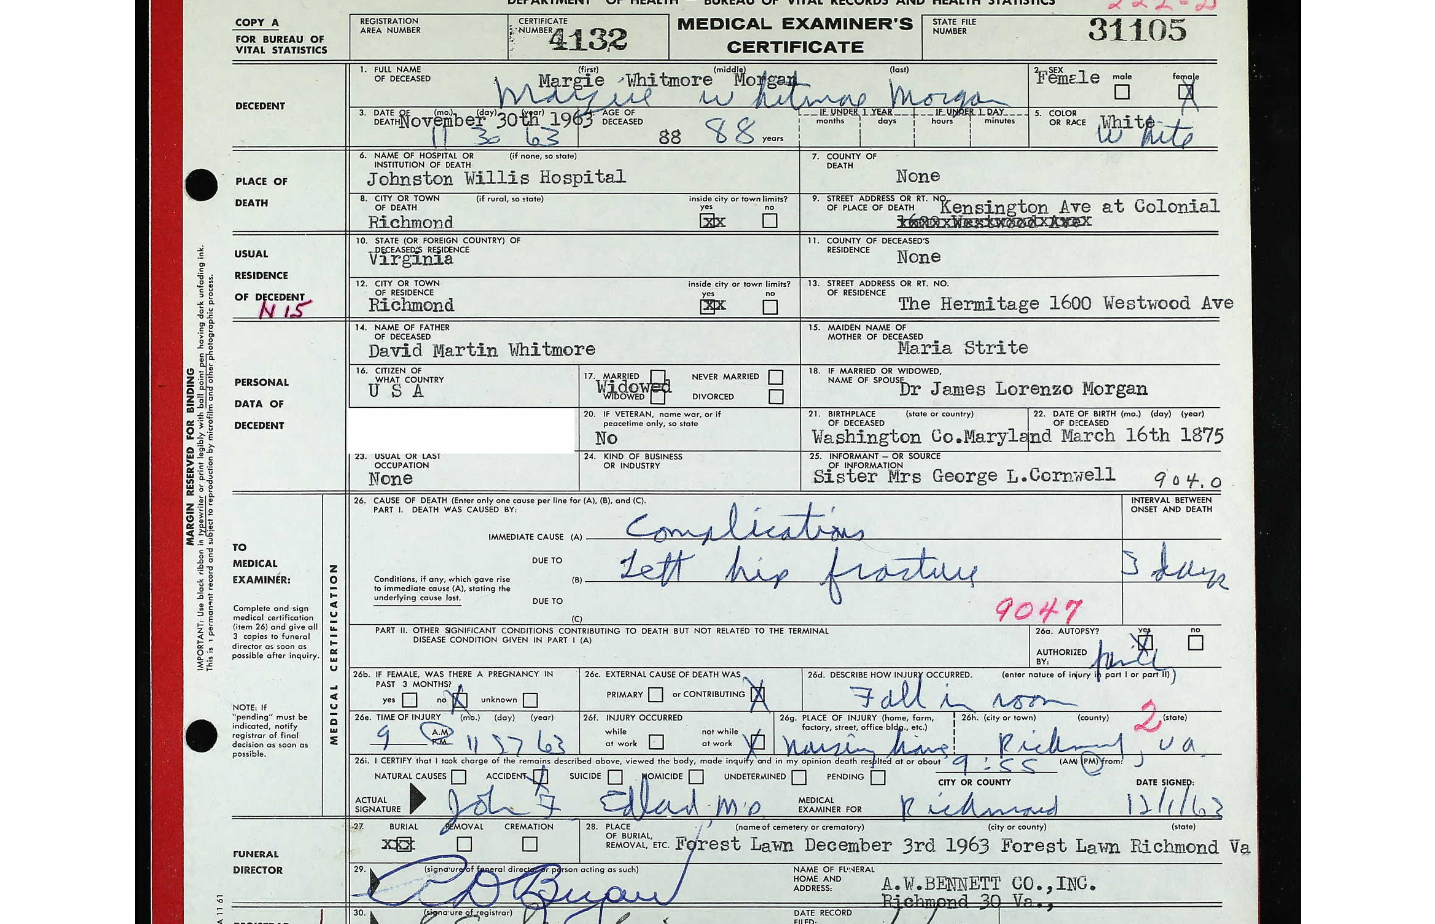 DEPARTMENT OF HEALTH — BUREAU OF VITAL RECORDS AND HEALTH STATISTICS
COPY A
FOR BUREAU OF
VITAL STATISTICS
REGISTRATION
AREA NUMBER
CERTIFICATE
NUMBER
4132
MEDICAL EXAMINER'S
CERTIFICATE
STATE FILE
NUMBER
31105
DECEDENT
1. FULL NAME
OF DECEASED
(first) (middle) (last)
Margie Whitmore Morgan
Margie Whitmore Morgan
2. SEX
Female
male female
3. DATE OF (mo.) (day) (year)
DEATH
November 30th 1963
11 30 63
4. AGE OF
DECEASED
88 88 years
IF UNDER 1 YEAR IF UNDER 1 DAY
months days hours minutes
5. COLOR
OR RACE
White
White
PLACE OF
DEATH
6. NAME OF HOSPITAL OR (if none, so state)
INSTITUTION OF DEATH
Johnston Willis Hospital
7. COUNTY OF
DEATH
None
8. CITY OR TOWN (if rural, so state)
OF DEATH
Richmond
inside city or town limits?
yes no
xx
9. STREET ADDRESS OR RT. NO.
OF PLACE OF DEATH
Kensington Ave at Colonial
USUAL
RESIDENCE
OF DECEDENT
N 15
10. STATE (OR FOREIGN COUNTRY) OF
DECEASED'S RESIDENCE
Virginia
11. COUNTY OF DECEASED'S
RESIDENCE
None
12. CITY OR TOWN
OF RESIDENCE
Richmond
inside city or town limits?
yes no
xx
13. STREET ADDRESS OR RT. NO.
OF RESIDENCE
The Hermitage 1600 Westwood Ave
PERSONAL
DATA OF
DECEDENT
14. NAME OF FATHER
OF DECEASED
David Martin Whitmore
15. MAIDEN NAME OF
MOTHER OF DECEASED
Maria Strite
16. CITIZEN OF
WHAT COUNTRY
U S A
17. MARRIED NEVER MARRIED
Widowed
WIDOWED DIVORCED
18. IF MARRIED OR WIDOWED,
NAME OF SPOUSE
Dr James Lorenzo Morgan
20. IF VETERAN, name war, or if
peacetime only, so state
No
21. BIRTHPLACE (state or country)
OF DECEASED
Washington Co.Maryland
22. DATE OF BIRTH (mo.) (day) (year)
OF DECEASED
March 16th 1875
23. USUAL OR LAST
OCCUPATION
None
24. KIND OF BUSINESS
OR INDUSTRY
25. INFORMANT — OR SOURCE
OF INFORMATION
Sister Mrs George L.Cornwell
904.0
MARGIN RESERVED FOR BINDING
IMPORTANT: Use black ribbon in typewriter or print legibly with ball point pen having dark unfading ink.
This is a permanent record and subject to reproduction by microfilm and other photographic process.
TO
MEDICAL
EXAMINER:
Complete and sign
medical certification
(item 26) and give all
3 copies to funeral
director as soon as
possible after inquiry.
NOTE: IF
"pending" must be
indicated, notify
registrar of final
decision as soon as
possible.
MEDICAL CERTIFICATION
26. CAUSE OF DEATH (Enter only one cause per line for (A), (B), and (C).
PART I. DEATH WAS CAUSED BY:
INTERVAL BETWEEN
ONSET AND DEATH
IMMEDIATE CAUSE (A)
Complications
DUE TO
(B) Left hip fracture
3 days
Conditions, if any, which gave rise
to immediate cause (A), stating the
underlying cause last.
DUE TO
(C)
9047
PART II. OTHER SIGNIFICANT CONDITIONS CONTRIBUTING TO DEATH BUT NOT RELATED TO THE TERMINAL
DISEASE CONDITION GIVEN IN PART I (A)
26a. AUTOPSY? yes no
AUTHORIZED
BY:
26b. IF FEMALE, WAS THERE A PREGNANCY IN
PAST 3 MONTHS?
yes no unknown
26c. EXTERNAL CAUSE OF DEATH WAS
PRIMARY or CONTRIBUTING
26d. DESCRIBE HOW INJURY OCCURRED. (enter nature of injury in part I or part II)
Fall in room
26e. TIME OF INJURY (mo.) (day) (year)
9 A.M. P.M. 11 27 63
26f. INJURY OCCURRED
while
at work
not while
at work
26g. PLACE OF INJURY (home, farm,
factory, street, office bldg., etc.)
Nursing home
26h. (city or town) (county) (state)
Richmond, Va.
2
26i. I CERTIFY that I took charge of the remains described above, viewed the body, made inquiry and in my opinion death resulted at or about 9:55 (AM) (PM) from:
NATURAL CAUSES ACCIDENT SUICIDE HOMICIDE UNDETERMINED PENDING
CITY OR COUNTY DATE SIGNED:
ACTUAL
SIGNATURE
MEDICAL
EXAMINER FOR
Richmond 12/1/63
FUNERAL
DIRECTOR
27. BURIAL REMOVAL CREMATION
xxx
28. PLACE
OF BURIAL,
REMOVAL, ETC.
(name of cemetery or crematory) (city or county) (state)
Forest Lawn December 3rd 1963 Forest Lawn Richmond Va
29. (signature of funeral director or person acting as such)
NAME OF FUNERAL
HOME AND
ADDRESS:
A.W.BENNETT CO.,INC.
Richmond 30 Va.,
30. (signature of registrar)
DATE RECORD
FILED:
REGISTRAR